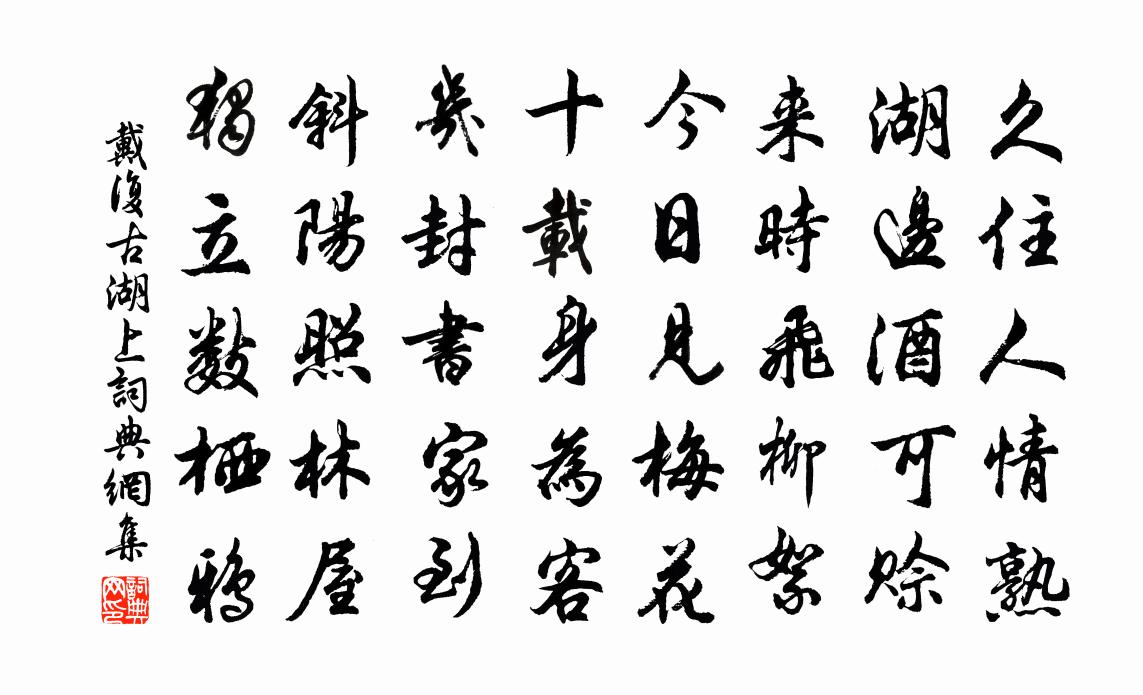 久住人情熟
湖邊酒可賒
来時飛柳絮
今日見梅花
十載身為客
幾封書家到
斜陽照林屋
獨立數栖鴉
戴復古湖上詞典網集
詞典
網印